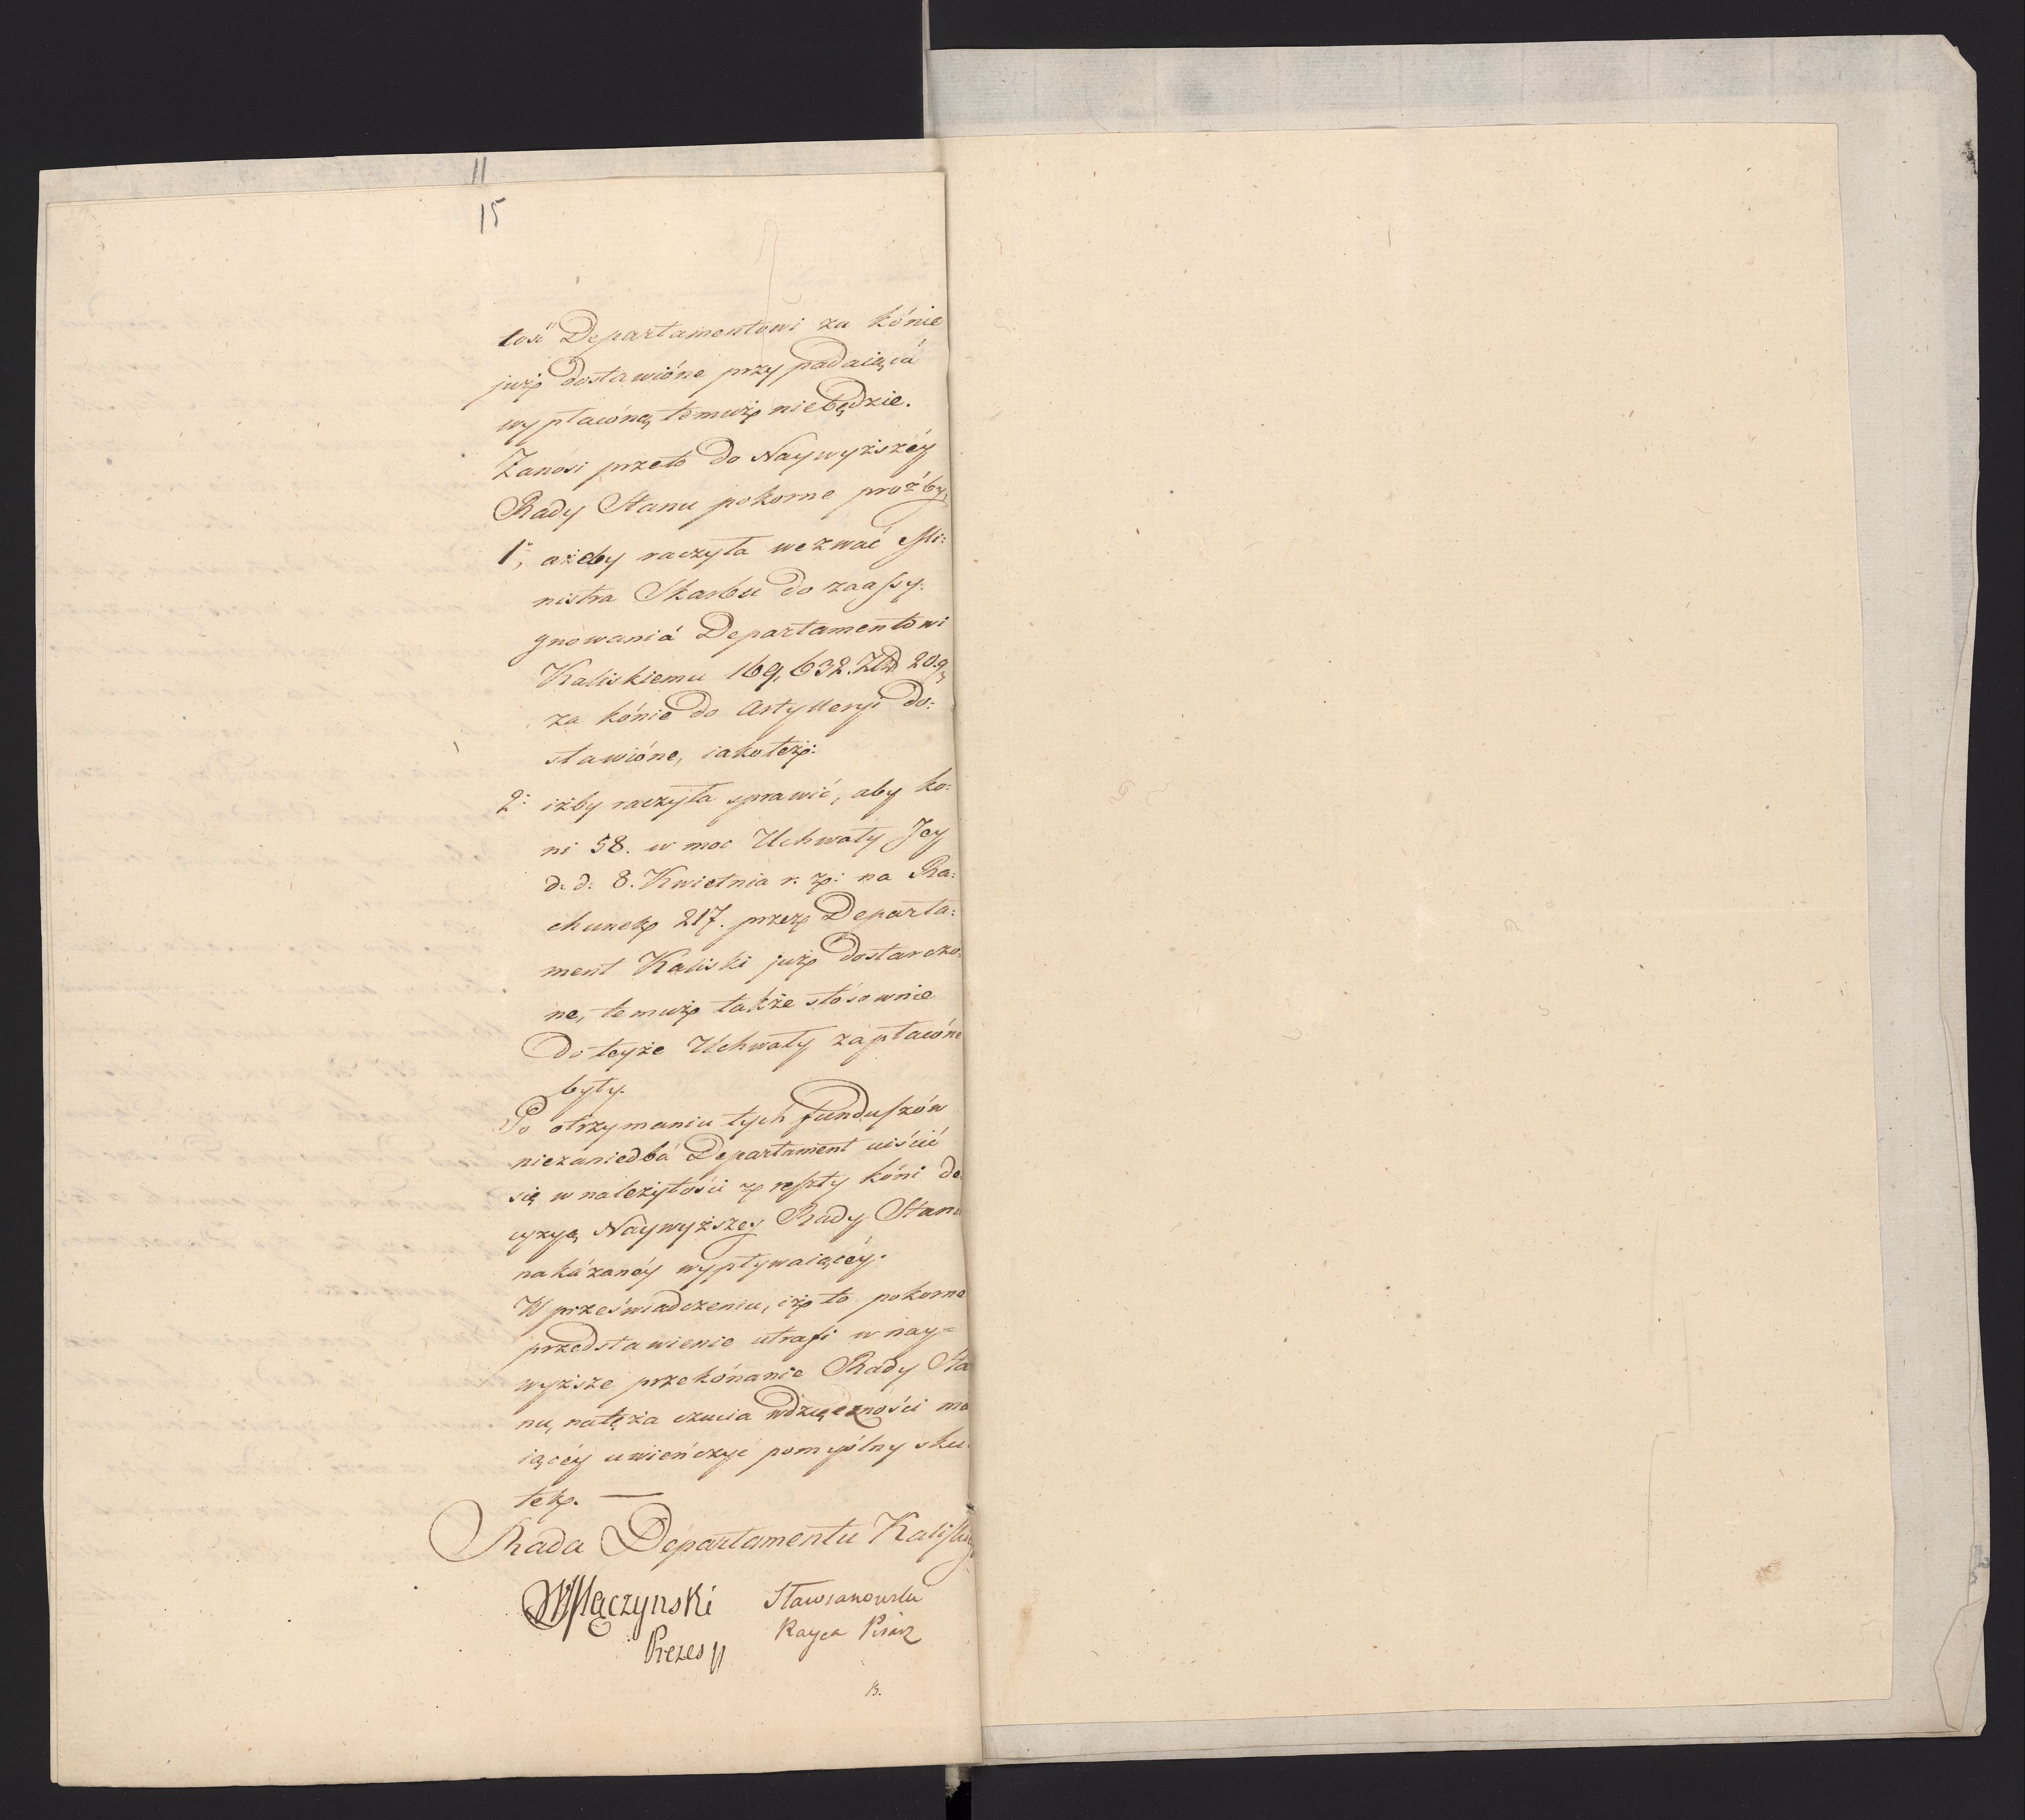 11
15
tość Departamentowi za kónie
już dostawióne przypadaiącá
wypłacóną temuż niebędzie.
Zanosi przeto do Naywyższéy
Rady Stanu pokorne proźby,
1º, ażeby raczyła wezwać Mi:
nistra Skarbu do zaassy:
gnowaniá Departamentowi
Kaliskiemu 169,632. Złł 20. g
za kónie do Artylleryi do:
stawióne, iakoteż:
2º iżby raczyła sprawić, aby ko:
ni 58. w moc Uchwały Jey
d. d. 8. Kwietnia r. z: na Ra:
chunek 217. przez Departa:
ment Kaliski już dostarczo:
ne, temuż także stósownie
do teyże Uchwały zapłacóne
były.
Po otrzymaniu tych funduszów
niezaniedbá Departament uiścić
się w należytości z reszty kóni de
cyzyą Naywyższey Rady Stanu
nakázanéy wypływaiącéy.
W przeświadczeniu, iż to pokorne
przedstawienie utrafi w nay=
wyższe przekónanie Rady Sta
nu, natęża czucia wdzięczności ma
iącéy uwieńczyć pomyślny sku
tek. —
Rada Departamentu Kalisk
WMączynski
Prezes
Stawianowski
Rayca Pisarz
B.